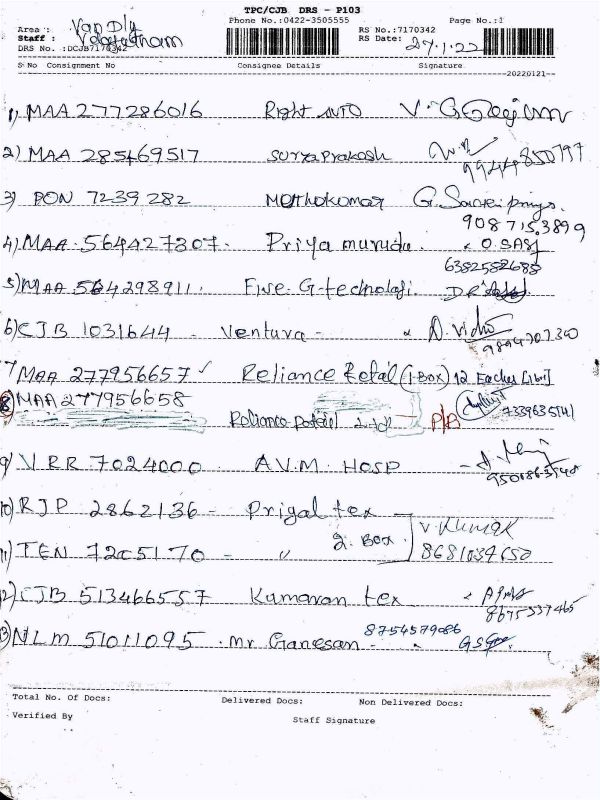 TPC/CJB DRS - P103
Phone No.:0422-3505555 Page No.:1
Area : Van Dly
Staff : Velayatham
RS No.:7170342
RS Date: 27.1.22
DRS No. :DCJB7170342
S No Consignment No Consignee Details Signature
20220121
1) MAA 277286016 Right AUTO
2) MAA 285469517 Surya Prakash 9944850797
3) PON 7239282 Muthokumar
9087153899
4) MAA 564427307 Priya murudu. O. SASI
6382582688
5) MAA 564298911 Five G-technologi.
6) CJB 1031644 - Ventura -
7 MAA 277956657 ✓ Reliance Retail (1-Box) 12
8) MAA 277956658
Reliance P/B 7339635141
9) VRR 7024000 A.V.M. HOSP
10) RJP 2862136 - Prigal tex V. Kumar
11) TEN 7205170 - " 2. Box 8681039650
12) CJB 513466557 Kumaran tex
8675337465
13) NLM 51011095 . Mr. Ganesan - 8754579086
Total No. Of Docs: Delivered Docs: Non Delivered Docs:
Verified By
Staff Signature